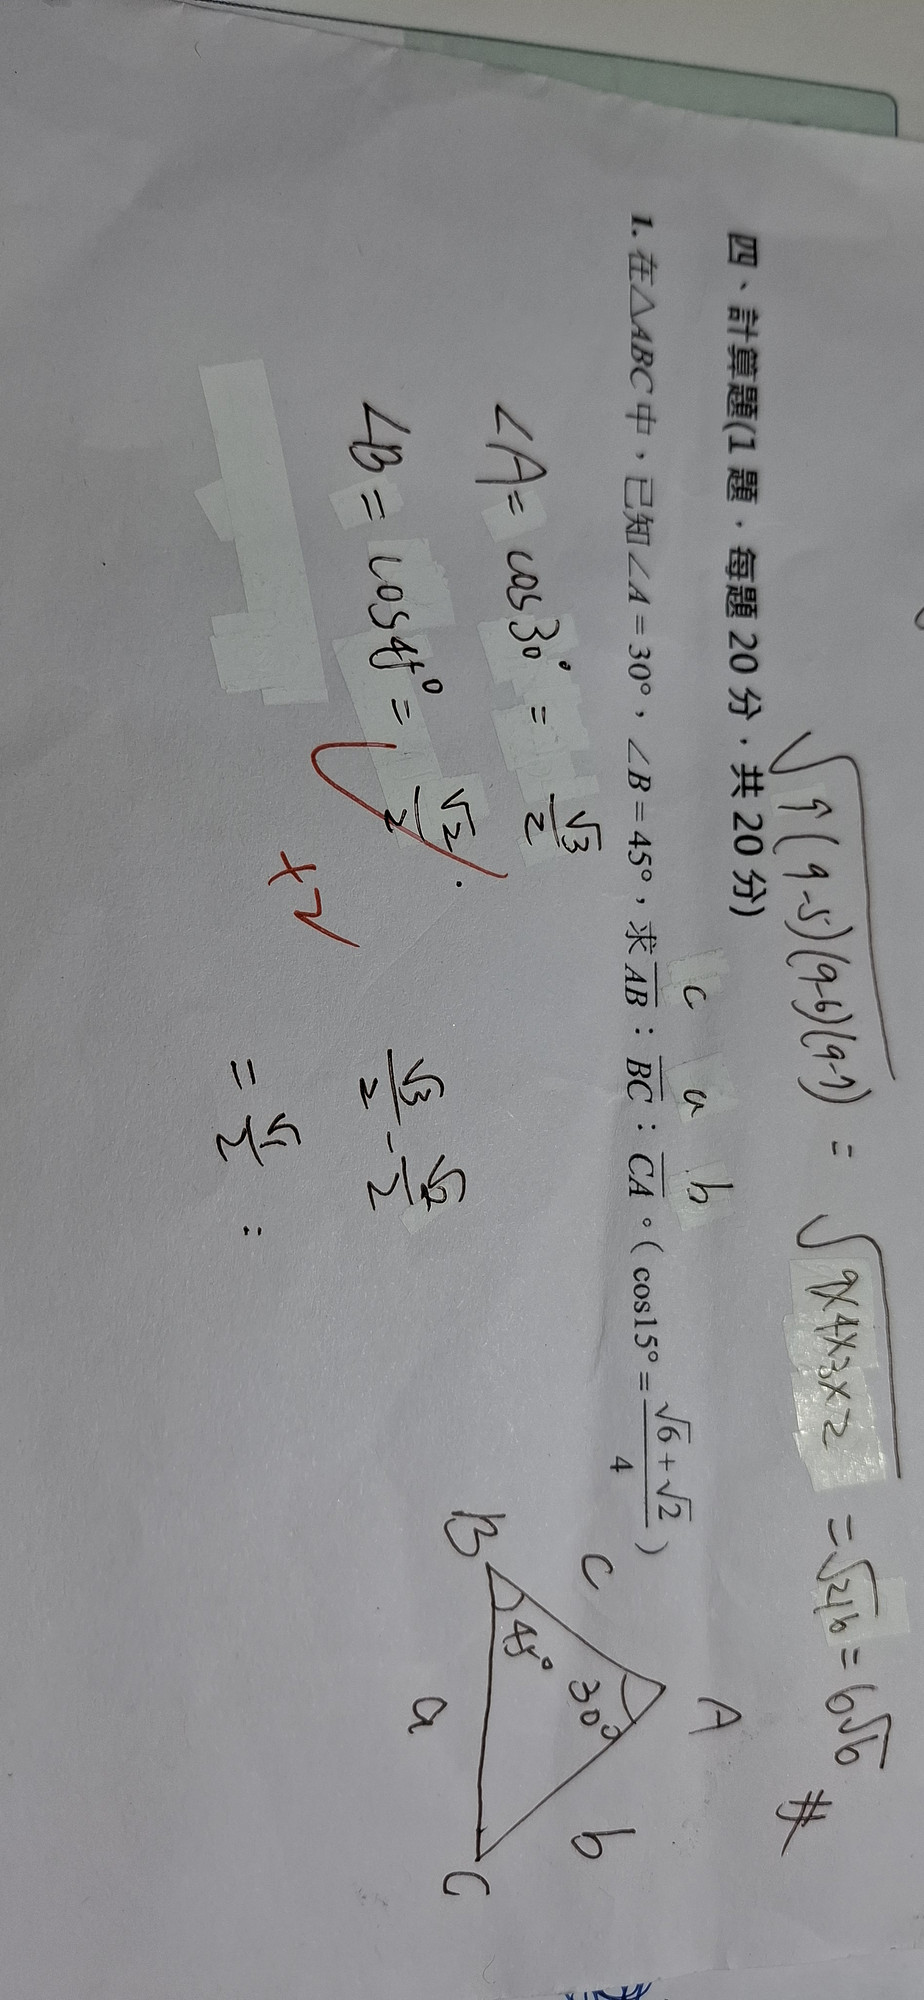 √9(9-5)(9-6)(9-7) = √9×4×3×2 = √216 = 6√6 #
四、計算題(1 題，每題 20 分，共 20 分)
c a b
1. 在△ABC中，已知∠A=30°，∠B=45°，求AB：BC：CA。(cos15°=√6+√2/4)
∠A= cos30° = √3/2
∠B= cos45° = √2/2
+2
√3/2 - √2/2
= √1/2 :
A
B
C
c
45°
30°
a
b